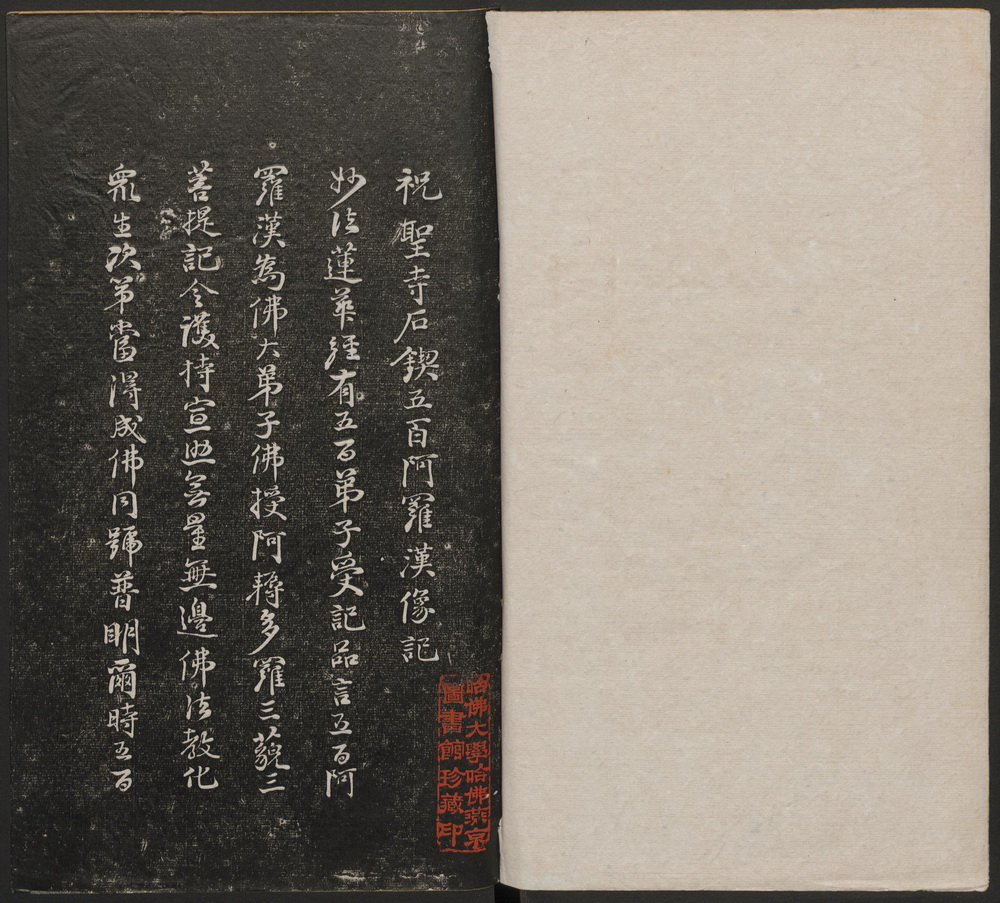 祝聖寺石鍥五百阿羅漢像記
妙法蓮華經有五百弟子受記品言五百阿
羅漢為佛大弟子佛授阿耨多羅三藐三
菩提記令護持宣照無量無邊佛法教化
眾生次第當得成佛同號普明爾時五百
哈佛大學哈佛燕京
圖書館珍藏印